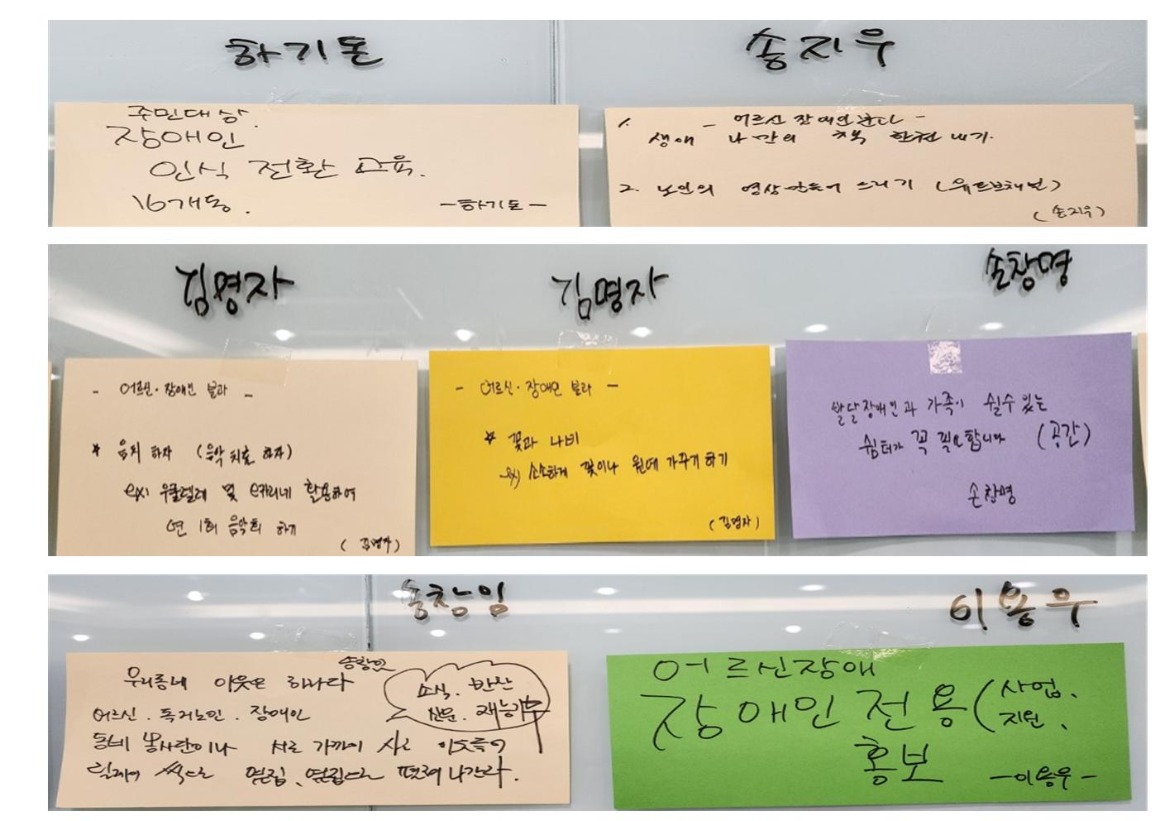 하기돈
송지우
주민대상.
장애인
인식 전환 교육.
16개동.
-하기돈-
1. - 어르신 장애인분과 -
생애 나만의 책 한권 내기.
2. 노인의 영상만들어 드리기 (유튜브채널)
(송지우)
김명자
김명자
손창명
- 어르신·장애인 분과 -
* 음치 하자 (음악 치료 하자)
ex) 우쿨렐레 및 오카리나 활용하여
연 1회 음악회 하기
(김명자)
- 어르신·장애인 분과 -
* 꽃과 나비
ex) 소소하게 꽃이나 원예 가꾸기 하기
(김명자)
발달장애인과 가족이 쉴수 있는
쉼터가 꼭 필요합니다 (공간)
손창명
송창임
이용우
송창임
우리동네 이웃은 하나다
소식. 반찬
신문. 재능기부
어르신. 독거노인. 장애인
동네 봉사단이나 서로 가까이 사는
옆집, 옆집으로
어르신장애
장애인 전용 (사업.
지원.
홍보
-이용우-